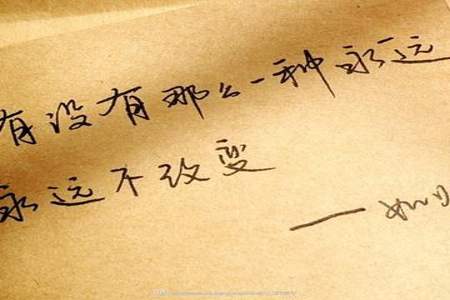 有没有那么一种永远
永远不改变
— 如